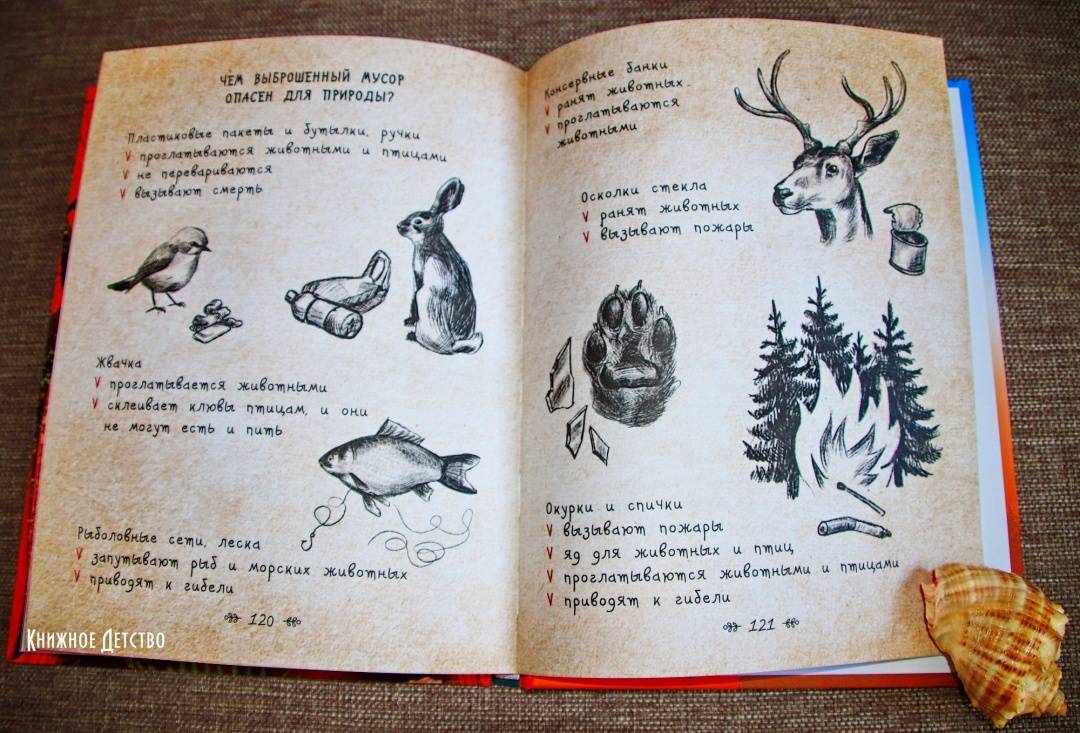 ЧЕМ ВЫБРОШЕННЫЙ МУСОР
ОПАСЕН ДЛЯ ПРИРОДЫ?
Пластиковые пакеты и бутылки, ручки
V проглатываются животными и птицами
V не перевариваются
V вызывают смерть
Жвачка
V проглатывается животными
V склеивает клювы птицам, и они
не могут есть и пить
Рыболовные сети, леска
V запутывают рыб и морских животных
V приводят к гибели
120
Книжное Детство
Консервные банки
V ранят животных
V проглатываются
животными
Осколки стекла
V ранят животных
V вызывают пожары
Окурки и спички
V вызывают пожары
V яд для животных и птиц
V проглатываются животными и птицами
V приводят к гибели
121